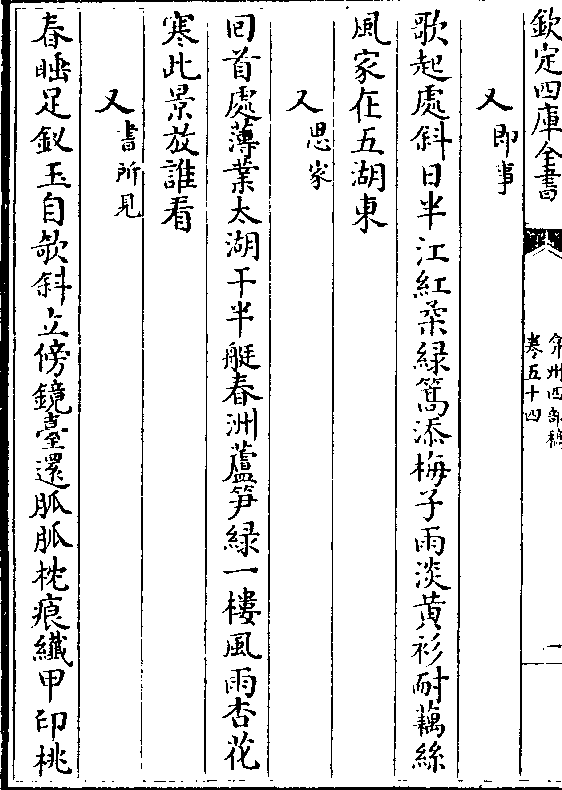 欽定四庫全書
弇州四部稿
卷五十四
一
又即事
歌起處斜日半江紅柔綠篙添梅子雨淡黃衫耐藕絲
風家在五湖東
又思家
回首處薄業太湖干半艇春洲蘆笋綠一樓風雨杏花
寒此景放誰看
又書所見
春睡足釵玉自欹斜立傍鏡臺還脈脈枕痕纖甲印桃